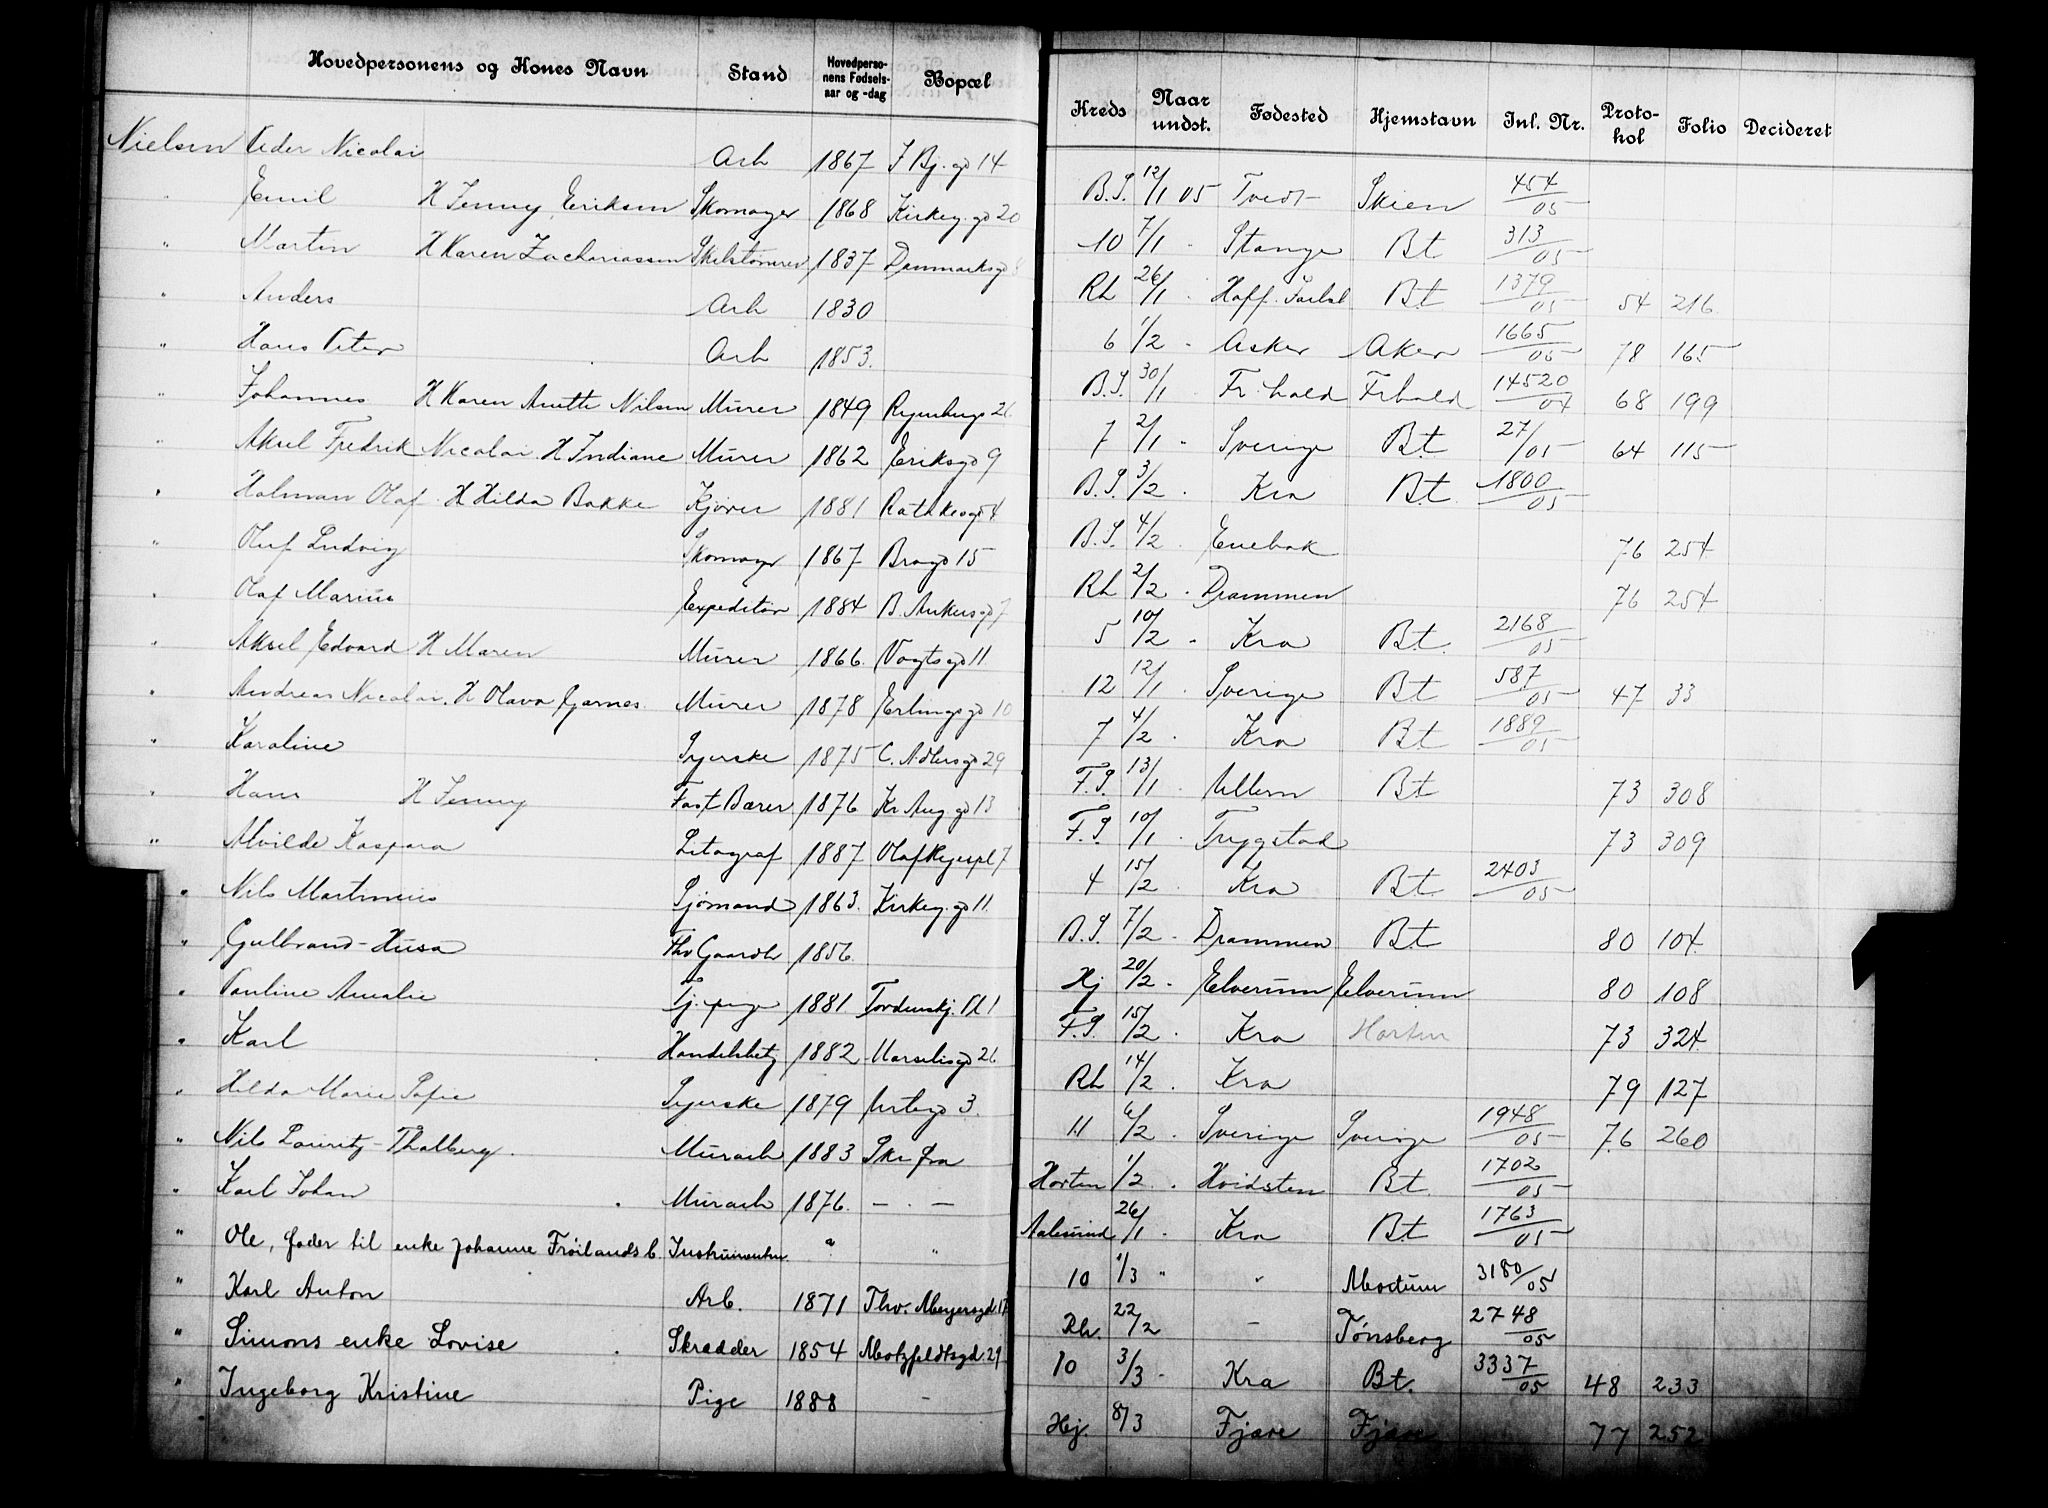 Hovedpersonens og Kones Navn Stand Hovedperso-nens Fødsels-aar og -dag Bopæl Kreds Naar undst. Fødested Hjemstavn Inl. Nr. Proto-kol Folio Decideret
Nielsen Peder Nicolai Arb 1867 F Bj. gd 14 B.S. 12/1 05 Tvedt Skien 454/05
" Emil H Jenny Eriksen Skomager 1868 Kirkeg. gd 20 10 7/1 - Stange Bt 313/05
" Martin H Karen Zachariassen 1837 Danmarksgd Rh 26/1 - Bt 1379/05 54 216
" Anders Arb 1830 6 1/2 - Asker Aker 1665/05 78 165
" Hans Peter Arb 1853. B.S. 30/1 - Fr. hald Frhald 14520/04 68 199
" Johannes H Karen Anette Nilsen Murer 1849 7 2/1 - Sverige Bt 27/05 64 115
" Aksel Fredrik Nicolai H Indiane Murer 1862 Eriksgd 9 B.S. 3/2 - Kra Bt 1800/05
" Halman Olaf H Hilda Bakke Kjører 1881 Rathkesgd 4 B.S. 4/2 - Enebak 76 254
" Oluf Ludvig Skomager 1867 Bragd 15 Rh 2/2 - Drammen 76 254
" Olaf Marius Expeditør 1884 B. Ankersgd 7 5 10/2 - Kra Bt. 2168/05
" Aksel Edvard H Maren Murer 1866. Vogtsgd 11 12 12/1 - Sverige Bt 587/05 47 33
" Andreas Nicolai. H Olava Gjarnes Murer 1878 Erlingsgd 10 7 4/2 - Kra Bt 1889/05
" Karoline Syerske 1875 C. Adlersgd 29 F.S. 13/1 - Ullern Bt 73 308
" Hans H Jenny Fast Bærer 1876 Kr Aug gd 13 F.S. 10/1 - Trygstad 73 309
" Alvilde Kaspara Litograf 1887 Olaf Ryespl 7 4 15/2 Kra Bt. 2403/05
" Nils Martinius Sjømand 1863. Kirkeg. gd 11. B.S. 7/2 - Drammen Bt 80 104
" Gulbrand-Husa Fhv Gaardb 1856. Hj 20/2 - Elverum Elverum 80 108
" Pauline Amalie Tj. pige 1881 Tordenskj. Pl 1 F.S. 15/2 - Kra Horten 73 324
" Karl Handelsbetj 1882 Marselisgd 26 Rh 14/2 - Kra 79 127
" Hilda Marie Sofie Syerske 1879 Urtegd 3. 11 6/2 - Sverige Sverige 1948/05 76 260
" Nils Lauritz-Thalberg. Murarb 1883 Skr fra Horten 1/2 - Hvidsten Bt. 1702/05
" Karl Johan Murarb 1876. — . — Aalesund 26/1 - Kra Bt 1763/05
" Ole, fader til enke Johanne Frøilands b. " 10 1/3 " " Modum 3180/05
" Karl Anton Arb. 1871 Thv. Meyersgd. 17 Rh. 22/2 - Tønsberg 2748/05
" Simons enke Lovise Skrædder 1854 Motzfeldtsgd. 29 10 3/3 - Kra Bt. 3337/05 48 233
" Ingeborg Kristine Pige 1888 - Hj. 8/3 Fjære Fjære 77 252